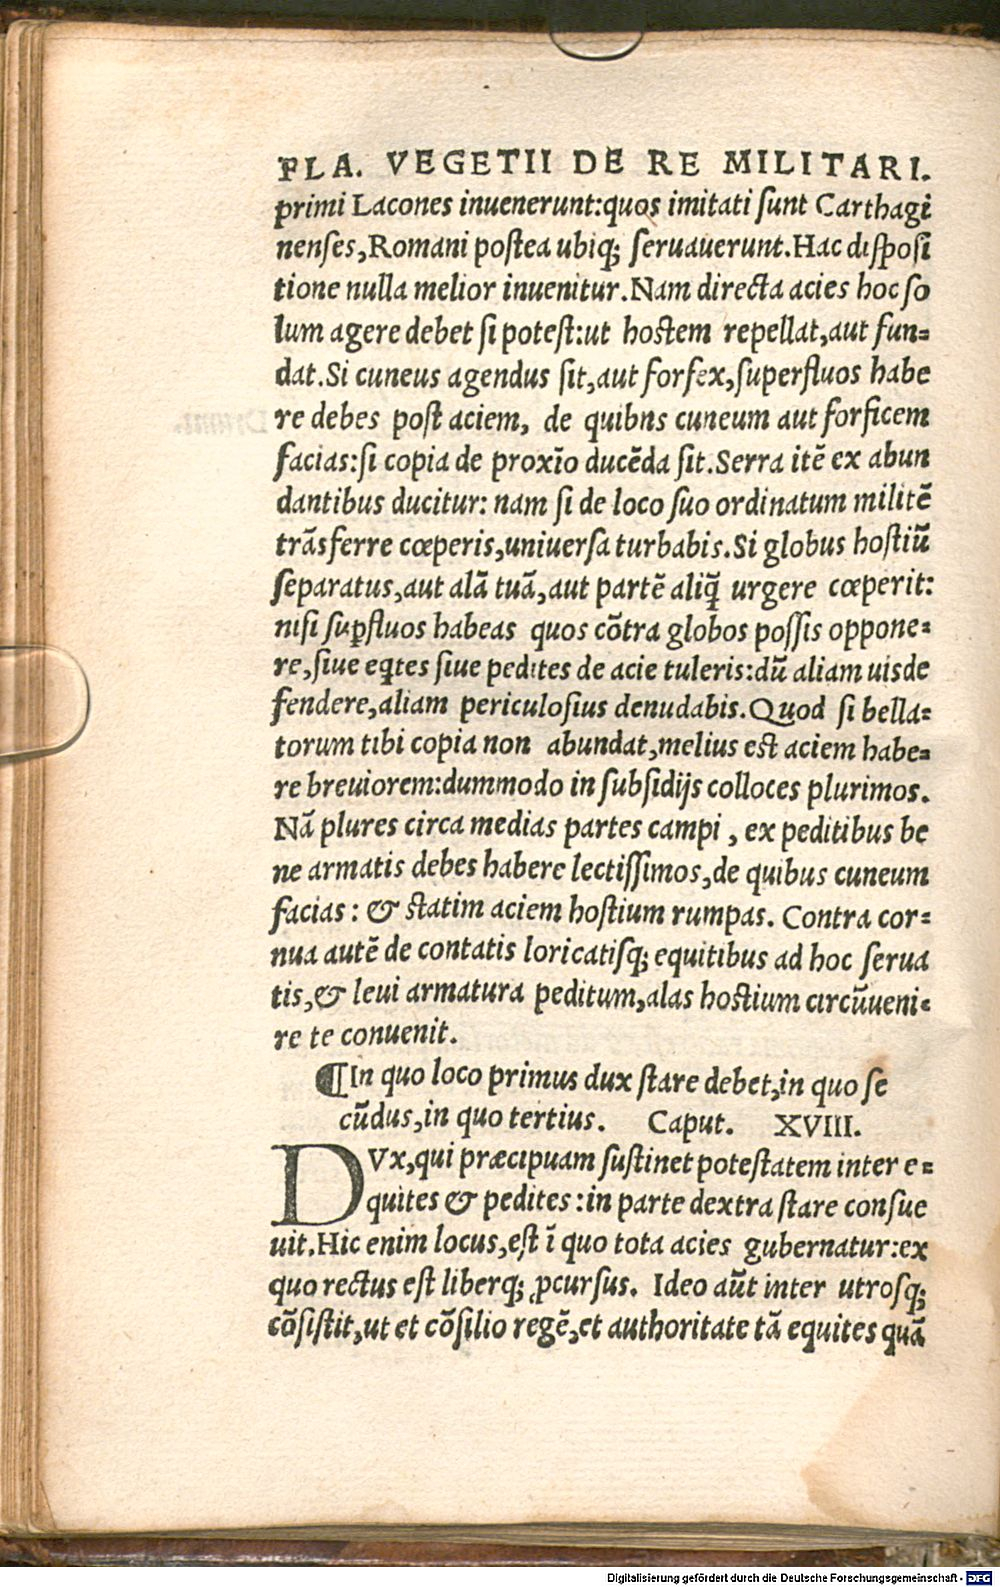 FLA. VEGETII DE RE MILITARI.
primi Lacones inuenerunt:quos imitati ſunt Carthagi
nenſes,Romani poſtea ubiq; ſeruauerunt.Hac diſpoſi
tione nulla melior inuenitur.Nam directa acies hoc ſo
lum agere debet ſi poteſt:ut hoſtem repellat,aut fun=
dat.Si cuneus agendus ſit,aut forfex,ſuperfluos habe
re debes poſt aciem, de quibns cuneum aut forficem
facias:ſi copia de proxīo ducēda ſit.Serra itē ex abun
dantibus ducitur: nam ſi de loco ſuo ordinatum militē
trāsferre cœperis,uniuerſa turbabis.Si globus hoſtiū
ſeparatus,aut alā tuā,aut partē aliq̄ urgere cœperit:
niſi ſuꝑfluos habeas quos cōtra globos poſſis oppone=
re,ſiue eqtes ſiue pedites de acie tuleris:dū aliam uis de
fendere,aliam periculoſius denudabis.Quod ſi bella=
torum tibi copia non abundat,melius eſt aciem habe=
re breuiorem:dummodo in ſubſidijs colloces plurimos.
Nā plures circa medias partes campi , ex peditibus be
ne armatis debes habere lectiſſimos,de quibus cuneum
facias: & ſtatim aciem hoſtium rumpas. Contra cor=
nua autē de contatis loricatiſq; equitibus ad hoc ſerua
tis,& leui armatura peditum,alas hoſtium circūueni=
re te conuenit.
¶In quo loco primus dux ſtare debet,in quo ſe
cūdus,in quo tertius. Caput. XVIII.
DVx,qui præcipuam ſuſtinet poteſtatem inter e=
quites & pedites:in parte dextra ſtare conſue
uit.Hic enim locus,eſt ī quo tota acies gubernatur:ex
quo rectus eſt liberq; ꝓcurſus. Ideo aūt inter utroſq;
cōſiſtit,ut et cōſilio regē,et authoritate tā equites quā
Digitalisierung gefördert durch die Deutsche Forschungsgemeinschaft - DFG